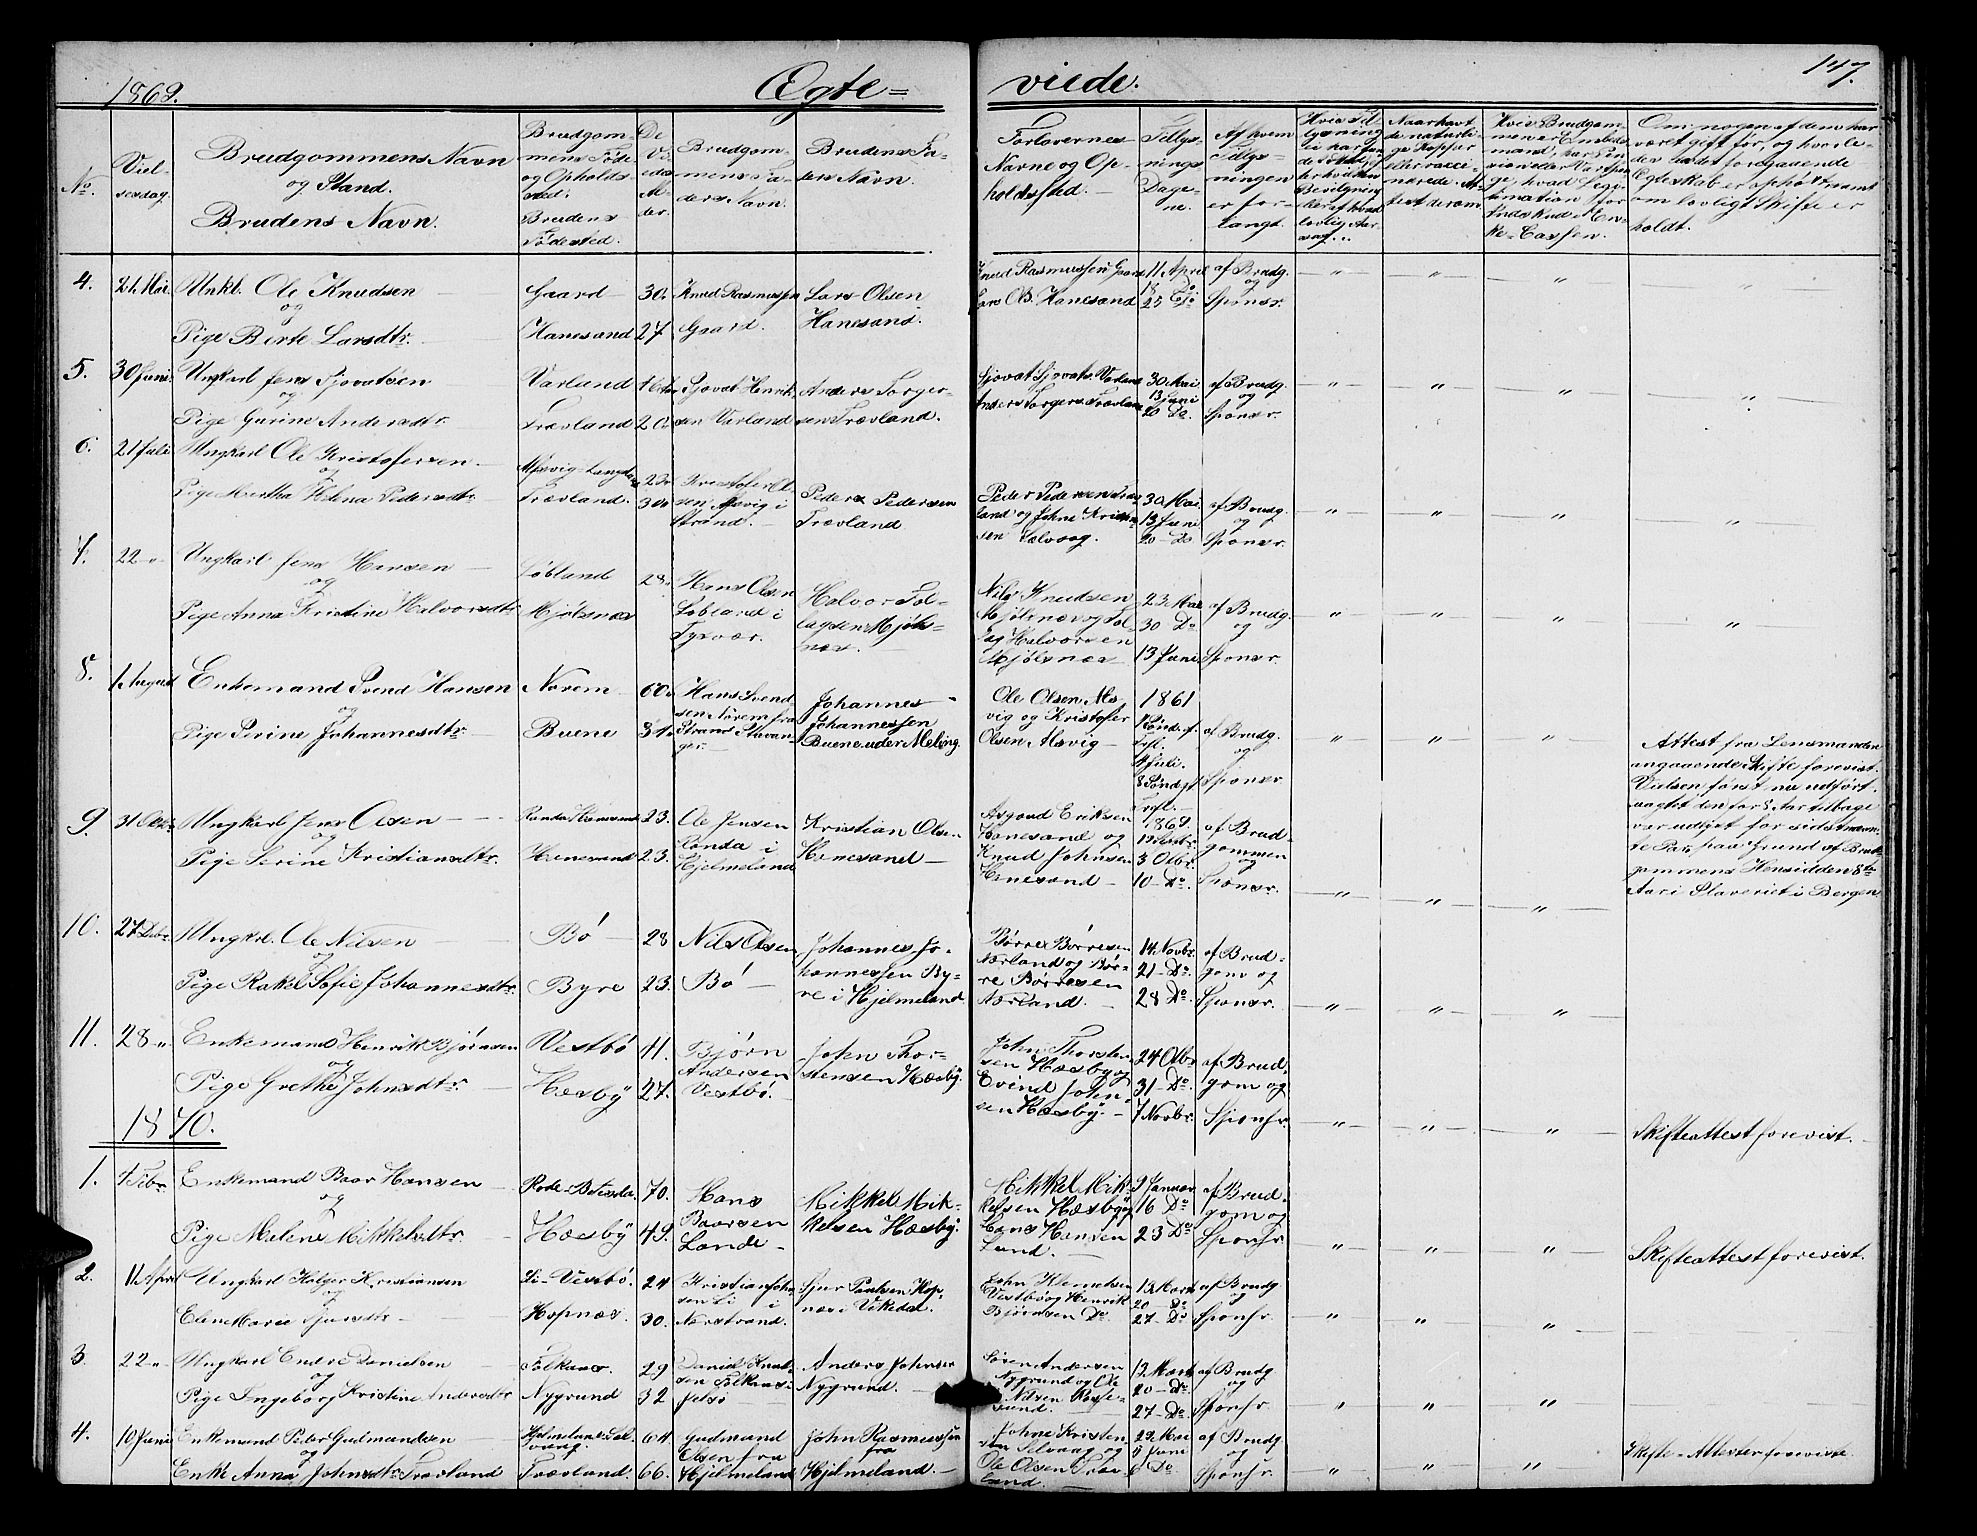 1869.
Ægte=
viede.
147.
No.
Viel-
sesdag.
Brudgommens Navn
og Stand.
Brudens Navn.
Brudgom-
mens Føde
og Opholds
sted.
Brudens
Fødested.
De
Vi
edes
Al-
der.
Brudgom-
mens Fa-
ders Navn.
Brudens Fa-
ders Navn.
Forlovernes
Navne og Op-
holdssted.
Tillys-
nings
Dage-
ne.
Af hvem
Tillys-
ningen
er for-
langt.
Om nogen af dem har
været gift før, og hvorle-
des hadet foregaaende
Egteskab er ophørt, samt
om lovligt Skifte er
holdt.
4. 21. Mai. Unkl. Ole Knudsen
og
Pige Birte Larsdtr.
Gaard
Hanesand
30.
27
Knud Rasmussen
Gaard.
Lars Olsen
Hanesand.
Knud Rasmussen Gaard
Lars Ols. Hanesand
11 April
18 Do
25 Do
af Brudg.
og
Sponsr.
5. 30 Juni. Ungkarl Jens Sjovatsen
og
Pige Gurine Andersdtr.
Varland
Trævland
20
Sjovat Henrik-
sen Varland
Anders Torger-
sen Trævland.
30 Mai.
13 Juni
20 Do.
af Brudg.
og
Sponsr.
6. 21 Juli Ungkarl Ole Kristofersen
og
Pige Martha Helena Pedersdtr
Trævland.
Kristofer Ol-
sen Mævig i
Strand.
Peder Pedersen
Trævland
Peder Pedersen Træv-
land og Johne Kristen
sen Sælvaag.
30 Mai.
13 Juni
20 - Do
af Brudg.
og
Sponsr.
7. 22 " Ungkarl Jens Hansen
og
Pige Anna Kristine Halvorsdtr
Løbland
Mjølsnæs
28.
Hans Olsen
Løbland i
Tysvær.
Halvor Fol-
lagsen Mjøls-
næs.
Nils Knudsen
Mjølsnæs og Fol-
lag Halvorsen
Mjølsnæs
23 Mai
30 Do
13 Juni
af Brudg.
og
Sponsr.
8. 1. August Enkemand Svend Hansen
og
Pige Serine Johannesdtr.
Norem
Buene
60.
Hans Svend
sen Norem fra
Strand Stavan-
ger.
Johannes
Johannessen
Buene under Meling.
Ole Olsen Mæ-
vig og Kristofer
Olsen Mævig
1861
4 Juli.
8 Sønd. f.
af Brudg.
og
Sponsr
Attest fra Lensmanden
angaaende Skifte forevist.
Vielsen først nu udført,
uagtet den for 8 Aar tilbage
var udlyst for sidstnævn-
te Par, paa Grund af Brud-
gommens Hensidden 8te
Aar i Slaveriet i Bergen
9. 31 Octbr. Ungkarl Jens Olsen
og
Pige Serine Kristiansdtr.
Randa Hanesand
Hanesand
23.
23.
Ole Jensen
Randa i
Hjelmeland
Kristian Olsen
Hanesand
Asgaud Eriksen
Hanesand og
Knud Johnsen
Hanesand
1869.
3 Octbr.
10 - Do.
af Brud-
gommen
og
Sponsr.
10. 27 Debr. Ungkrl. Ole Nilsen
og
Pige Rakel Sofie Johannesdtr.
Bø
Byre
28
23.
Nils Olsen
Bø
Johannes Jo-
hannessen By-
re i Hjelmeland
Børre Børresen
Nærland og Bør-
re Børresen
Nærland.
14. Novbr.
21 - Do.
28 Do
af Brud-
gom og
Sponsr.
11. 28 " Enkemand Henrik Bjørnsen
og
Pige Grethe Johnsdtr.
Vestbø
Hæsby
41.
27.
Bjørn
Andersen
Vestbø.
John Thor-
stensen Hæsby.
John Thorsten-
sen Hæsby og
Evind John-
sen Hæsby.
24 Octbr
31 - Do.
7 Novbr.
af Brud-
gom og
Sponsr.
Skifteattest forevist.
1870.
1. 4 Febr. Enkemand Baar Hansen
og
Pige Malene Mikkelsdtr.
Hæsby
70.
49.
Hans
Baarsen
Lande
Mikkel Mik-
kelsen Hæsby.
Mikkel Mik-
kelsen Hæsby og
Hans Hansen
Lund.
9 Januar
16 Do
23 Do
af Brud-
gom og
Sponsr.
Skifteattest forevist.
2. 11 April Ungkarl Holger Kristiansen
og
Elen Marie Sjursdtr
Li - Vestbø.
Hopnæs.
24
30.
Kristian John
sen Li i
Nærstrand.
Sjur Paulsen Hop-
næs i Vikedal.
John Klemetsen
Vestbø og Henrik
Bjørnsen Do.
13 Marts
20 - Do
27 - Do
af Brudg
og
Sponsr.
3. 22 " Ungkarl Endre Danielsen
og
Pige Ingeborg Kristine Andersdtr
Folknæs.
Nygrund
29
32
Daniel Knud-
sen Folknæs i
Jelsø
Anders Johnsen
Nygrund.
Søren Andersen
Nygrund og Ole
Nilsen Rosse-
sund.
13 Marts
20 - Do.
27 - Do.
af Brudg
og
Sponsr.
4. 10 Juni Enkemand Peder Gudmundsen
og
Enke Anna Johnsdtr Trævland
Hjelmeland Sæl-
vaag.
Trævland.
64
66.
Gudmund
Olsen fra
Hjelmeland
John Rasmussen
fra
Hjelmeland.
Johne Kristen-
sen Selvaag og
Ole Olsen Træv-
land.
29. Mai
6 Do.
af Brudg
og
Sponsr.
Skifte - Attester foreviste.